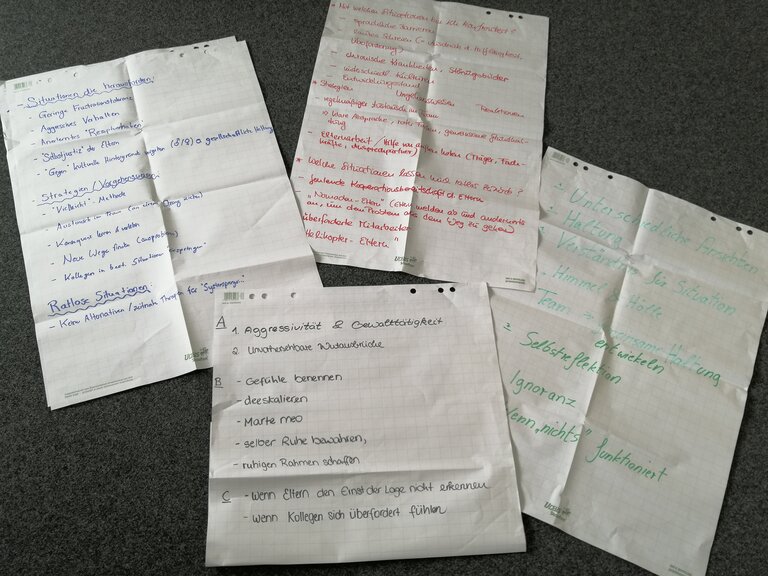 Situationen die herausfordern
- Geringe Frustrationstoleranz
- Aggressives Verhalten
- Antrainiertes
- "Selbstjustiz" der Eltern
- "Gegen" kulturelle Hintergründe (♂/♀) gesellschaftliche Haltung
Strategien / Vorgehensweisen
- "Vielleicht" - Methode
- Austausch im Team (an einem Strang ziehen)
- Konsequent leben &
- Neue Wege finden (ausprobieren)
- Kollegen in best. Situationen
Ratlose Situationen
- Keine Alternativen / zeitnah Therapien für "Systemsprenger"
* Mit welchen Situationen bin ich konfrontiert?
- sprachliche Barrieren
- lautes Schreien (= Ausdruck d. Hilflosigkeit,
Überforderung)
- chronische Krankheiten, Störungsbilder
- unterschiedl.
Entwicklungsstand
* Strategien Umgehensweisen Reaktionen
- regelmäßiger Austausch im Team
=> klare Absprache, roter Faden, gemeinsame Grundhal-
tung
- Elternarbeit / Hilfe von außen holen (Träger, Fach-
kräfte, Ansprechpartner)
* Welche Situationen lassen mich ratlos zurück?
- fehlende Kooperationsbereitschaft d. Eltern
- "Nomaden-Eltern" (Eltern melden ab und anderswo
an, um dem Problem aus dem Weg zu gehen)
überforderte Mitarbeiter
Helikopter-Eltern"
A
1. Aggressivität & Gewalttätigkeit
2. Unvorhersehbare Wutausbrüche
B
- Gefühle benennen
- deeskalieren
- Marte meo
- selber Ruhe bewahren,
- ruhigen Rahmen schaffen
C
- Wenn Eltern den Ernst der Lage nicht erkennen
- wenn Kollegen sich überfordert fühlen
Unterschiedliche Ansichten
- Haltung
- Verständnis für Situation
- Himmel & Hölle
Team => gemeinsame Haltung
entwickeln
- Selbstreflektion
Ignoranz
Wenn "nichts" funktioniert